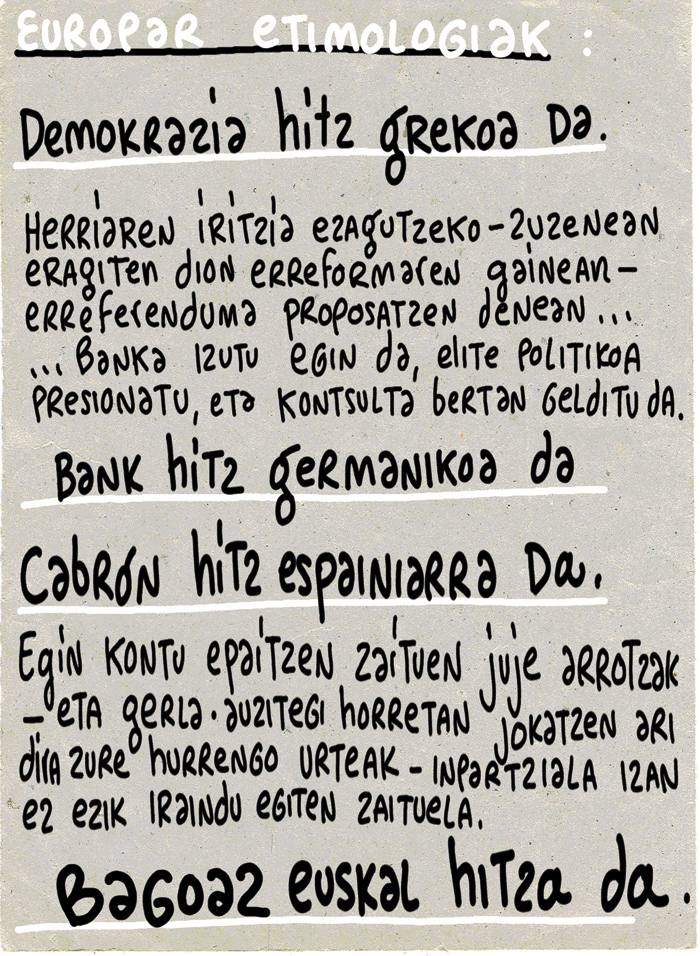 EUROPAR ETIMOLOGIAK :
DEMOKRAZIA hitz GREKOA DA.
HERRIAREN IRITZIA EZAGUTZEKO - ZUZENEAN
ERAGITEN DION ERREFORMAREN GAINEAN -
ERREFERENDUMA PROPOSATZEN DENEAN ...
... BANKA IZUTU EGIN DA, ELITE POLITIKOA
PRESIONATU, ETA KONTSULTA BERTAN GELDITU DA.
BANK hitz GERMANIKOA da
CABRÓN hitz ESPAINIARRA DA.
EGIN KONTU EPAITZEN ZAITUEN JUJE ARROTZAK
- ETA GERLA-AUZITEGI HORRETAN JOKATZEN ARI
DIRA ZURE HURRENGO URTEAK - INPARTZIALA IZAN
EZ EZIK IRAINDU EGITEN ZAITUELA.
BAGOAZ EUSKAL hitza da.